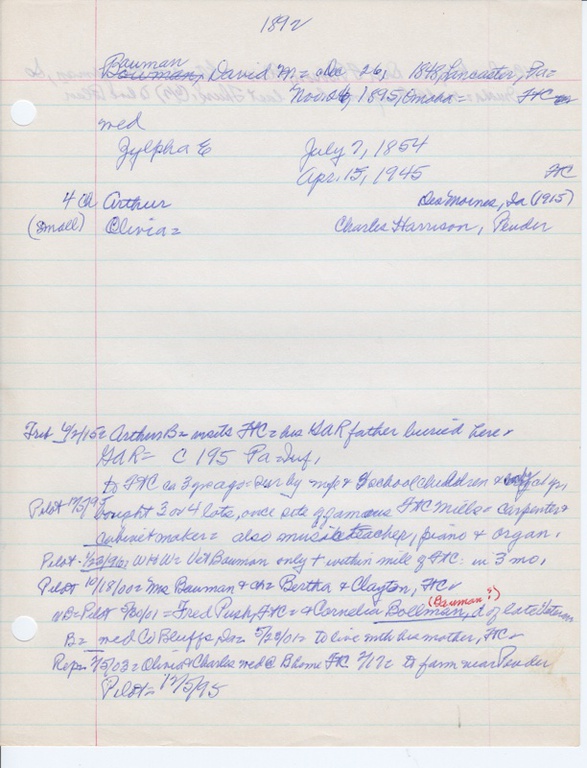 1892
Bauman
Bauman, David M = Dec 26, 1848, Lancaster, Pa =
Nov 1895, Omaha = FtC
med
Zylpha E July 7, 1854
Apr. 15, 1945 FtC
4 Ch Arthur Des Moines, Ia (1915)
(small) Olivia = Charles Harrison, Pender
6/2/15 = Arthur B = visits FtC = his GAR father buried here
GAR = C 195 Pa = Inf,
to FtC ca 3 yrs ago = sur by wife & 3 school children &
Pilot 12/5/95 bought 3 or 4 lots, once site of famous FtC Mills = carpenter &
cabinet maker = also music teacher, piano & organ,
Pilot - 1/22/96, W H W = Vet Bauman only + within mill of FtC in 3 mo,
Pilot 10/18/00 = Mrs Bauman & ch = Bertha & Clayton, FtC
(Bauman ?)
WB = Pilot 01 = Fred Push, FtC = & Cornelia Bollman, d of late Veteran
B = med Co Bluffs, Ia = 5/22/01 = to live with his mother, FtC
Rep = 2/5/03 = Olivia & Charles med @ B home FtC 2/1 = to farm near Pender
Pilot = 12/5/95